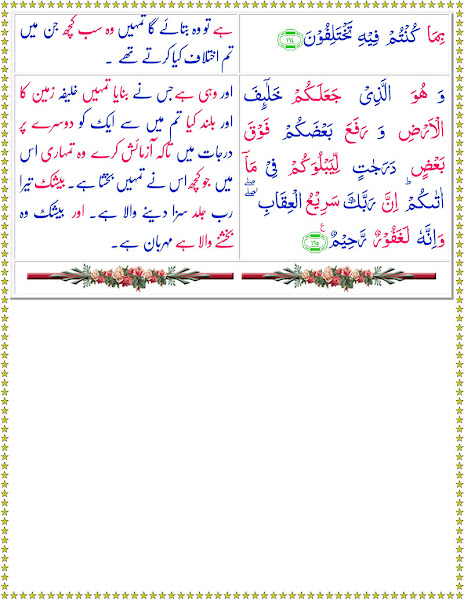 بِمَا كُنْتُمْ فِيْهِ تَخْتَلِفُوْنَ ﴿۱۶۴﴾
ہے تو وہ بتائے گا تمہیں وہ سب کچھ جن میں
تم اختلاف کیا کرتے تھے ۔
وَ هُوَ الَّذِیْ جَعَلَكُمْ خَلٰٓىِٕفَ
الْاَرْضِ وَ رَفَعَ بَعْضَكُمْ فَوْقَ
بَعْضٍ دَرَجٰتٍ لِّیَبْلُوَكُمْ فِیْ مَاۤ
اٰتٰىكُمْ ؕ اِنَّ رَبَّكَ سَرِیْعُ الْعِقَابِ ۖۗ
وَاِنَّهٗ لَغَفُوْرٌ رَّحِیْمٌ ﴿۱۶۵﴾
اور وہی ہے جس نے بنایا تمہیں خلیفہ زمین کا
اور بلند کیا تم میں سے ایک کو دوسرے پر
درجات میں تاکہ آزمائش کرے وہ تمہاری اس
میں جو کچھ اس نے تمہیں بخشا ہے۔ بیشک تیرا
رب جلد سزا دینے والا ہے۔ اور بیشک وہ
بخشنے والا ہے مہربان ہے۔